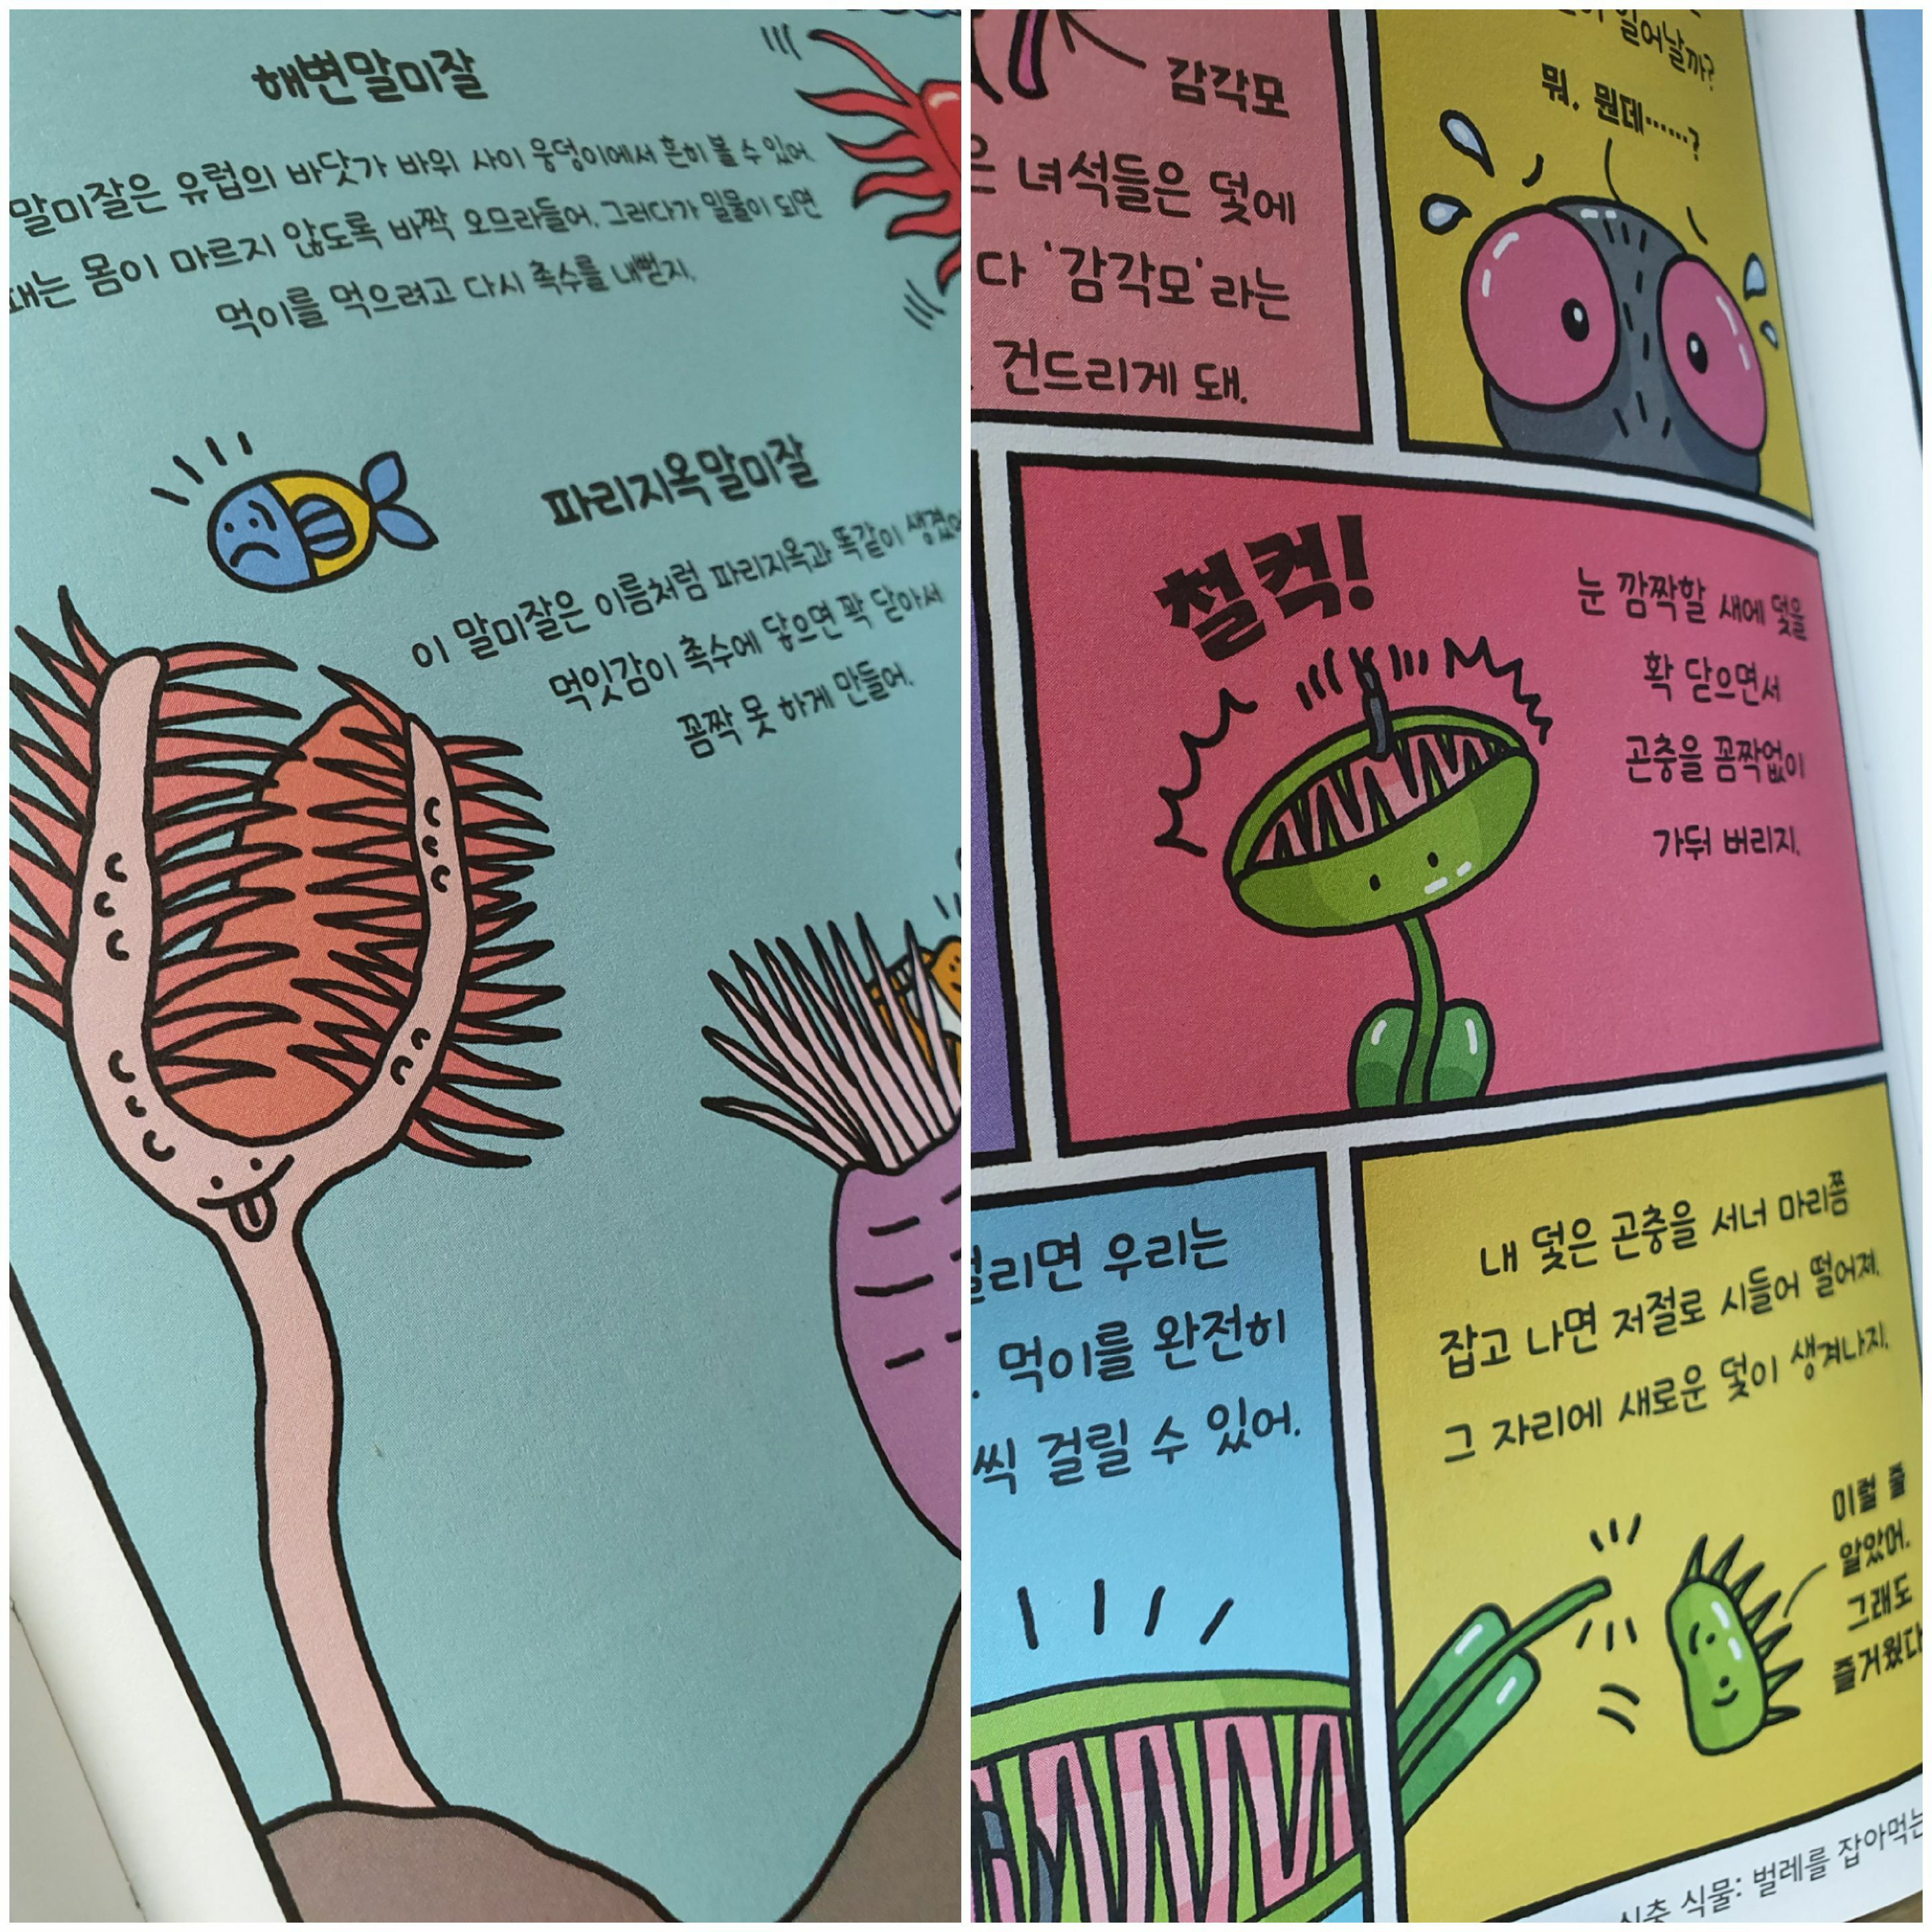 해변말미잘
말미잘은 유럽의 바닷가 바위 사이 웅덩이에서 흔히 볼 수 있어.
때는 몸이 마르지 않도록 바짝 오므라들어. 그러다가 밀물이 되면
먹이를 먹으려고 다시 촉수를 내뻗지.
파리지옥말미잘
이 말미잘은 이름처럼 파리지옥과 똑같이 생겼어
먹잇감이 촉수에 닿으면 꽉 닫아서
꼼짝 못 하게 만들어.
감각모
은 녀석들은 덫에
다 '감각모'라는
건드리게 돼.
일어날까?
뭐, 뭔데……?
철컥!
눈 깜짝할 새에 덫을
확 닫으면서
곤충을 꼼짝없이
가둬 버리지.
걸리면 우리는
. 먹이를 완전히
씩 걸릴 수 있어.
내 덫은 곤충을 서너 마리쯤
잡고 나면 저절로 시들어 떨어져.
그 자리에 새로운 덫이 생겨나지.
이럴 줄
알았어.
그래도
즐거웠다
식충 식물: 벌레를 잡아먹는